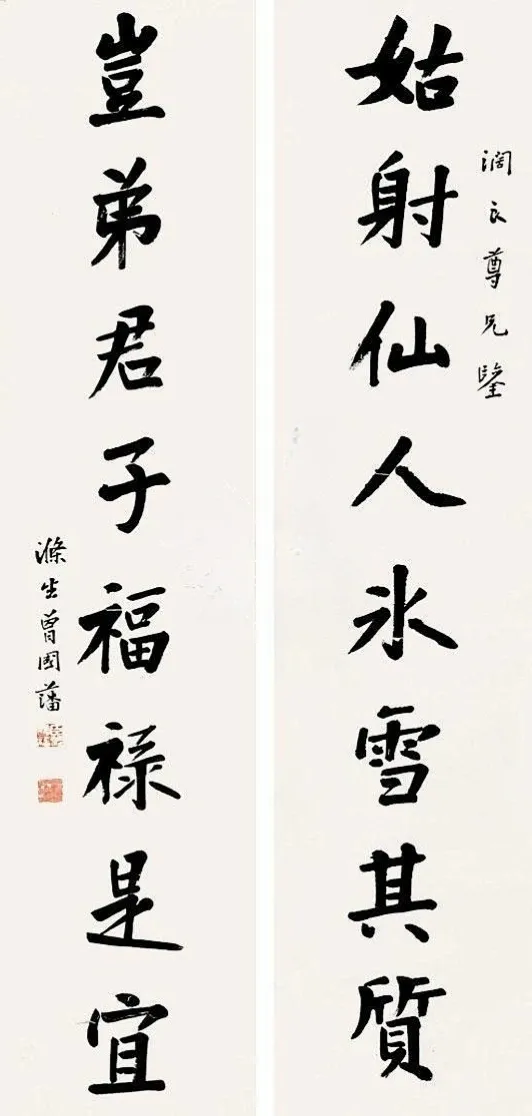 姑射仙人冰雪其質
濶良尊兄鑒
豈弟君子福祿是宜
滌生曾國藩